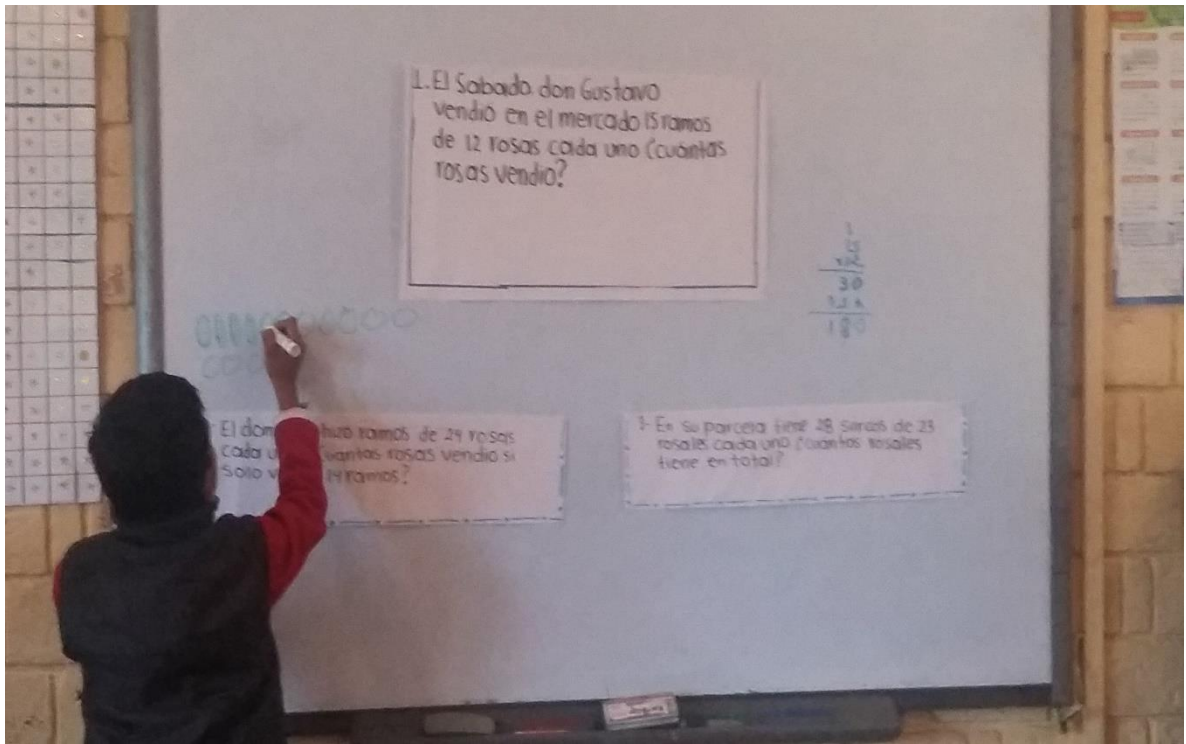 1. El Sabado don Gustavo
vendió en el mercado 15 ramos
de 12 rosas cada uno ¿cuántas
rosas vendio?
1
15
x12
30
180
El dom hizo ramos de 24 rosas
cada uantas rosas vendio si
solo v 14 ramos?
3- En su parcela tiene 28 surcos de 23
rosales cada uno ¿cuántos rosales
tiene en total?